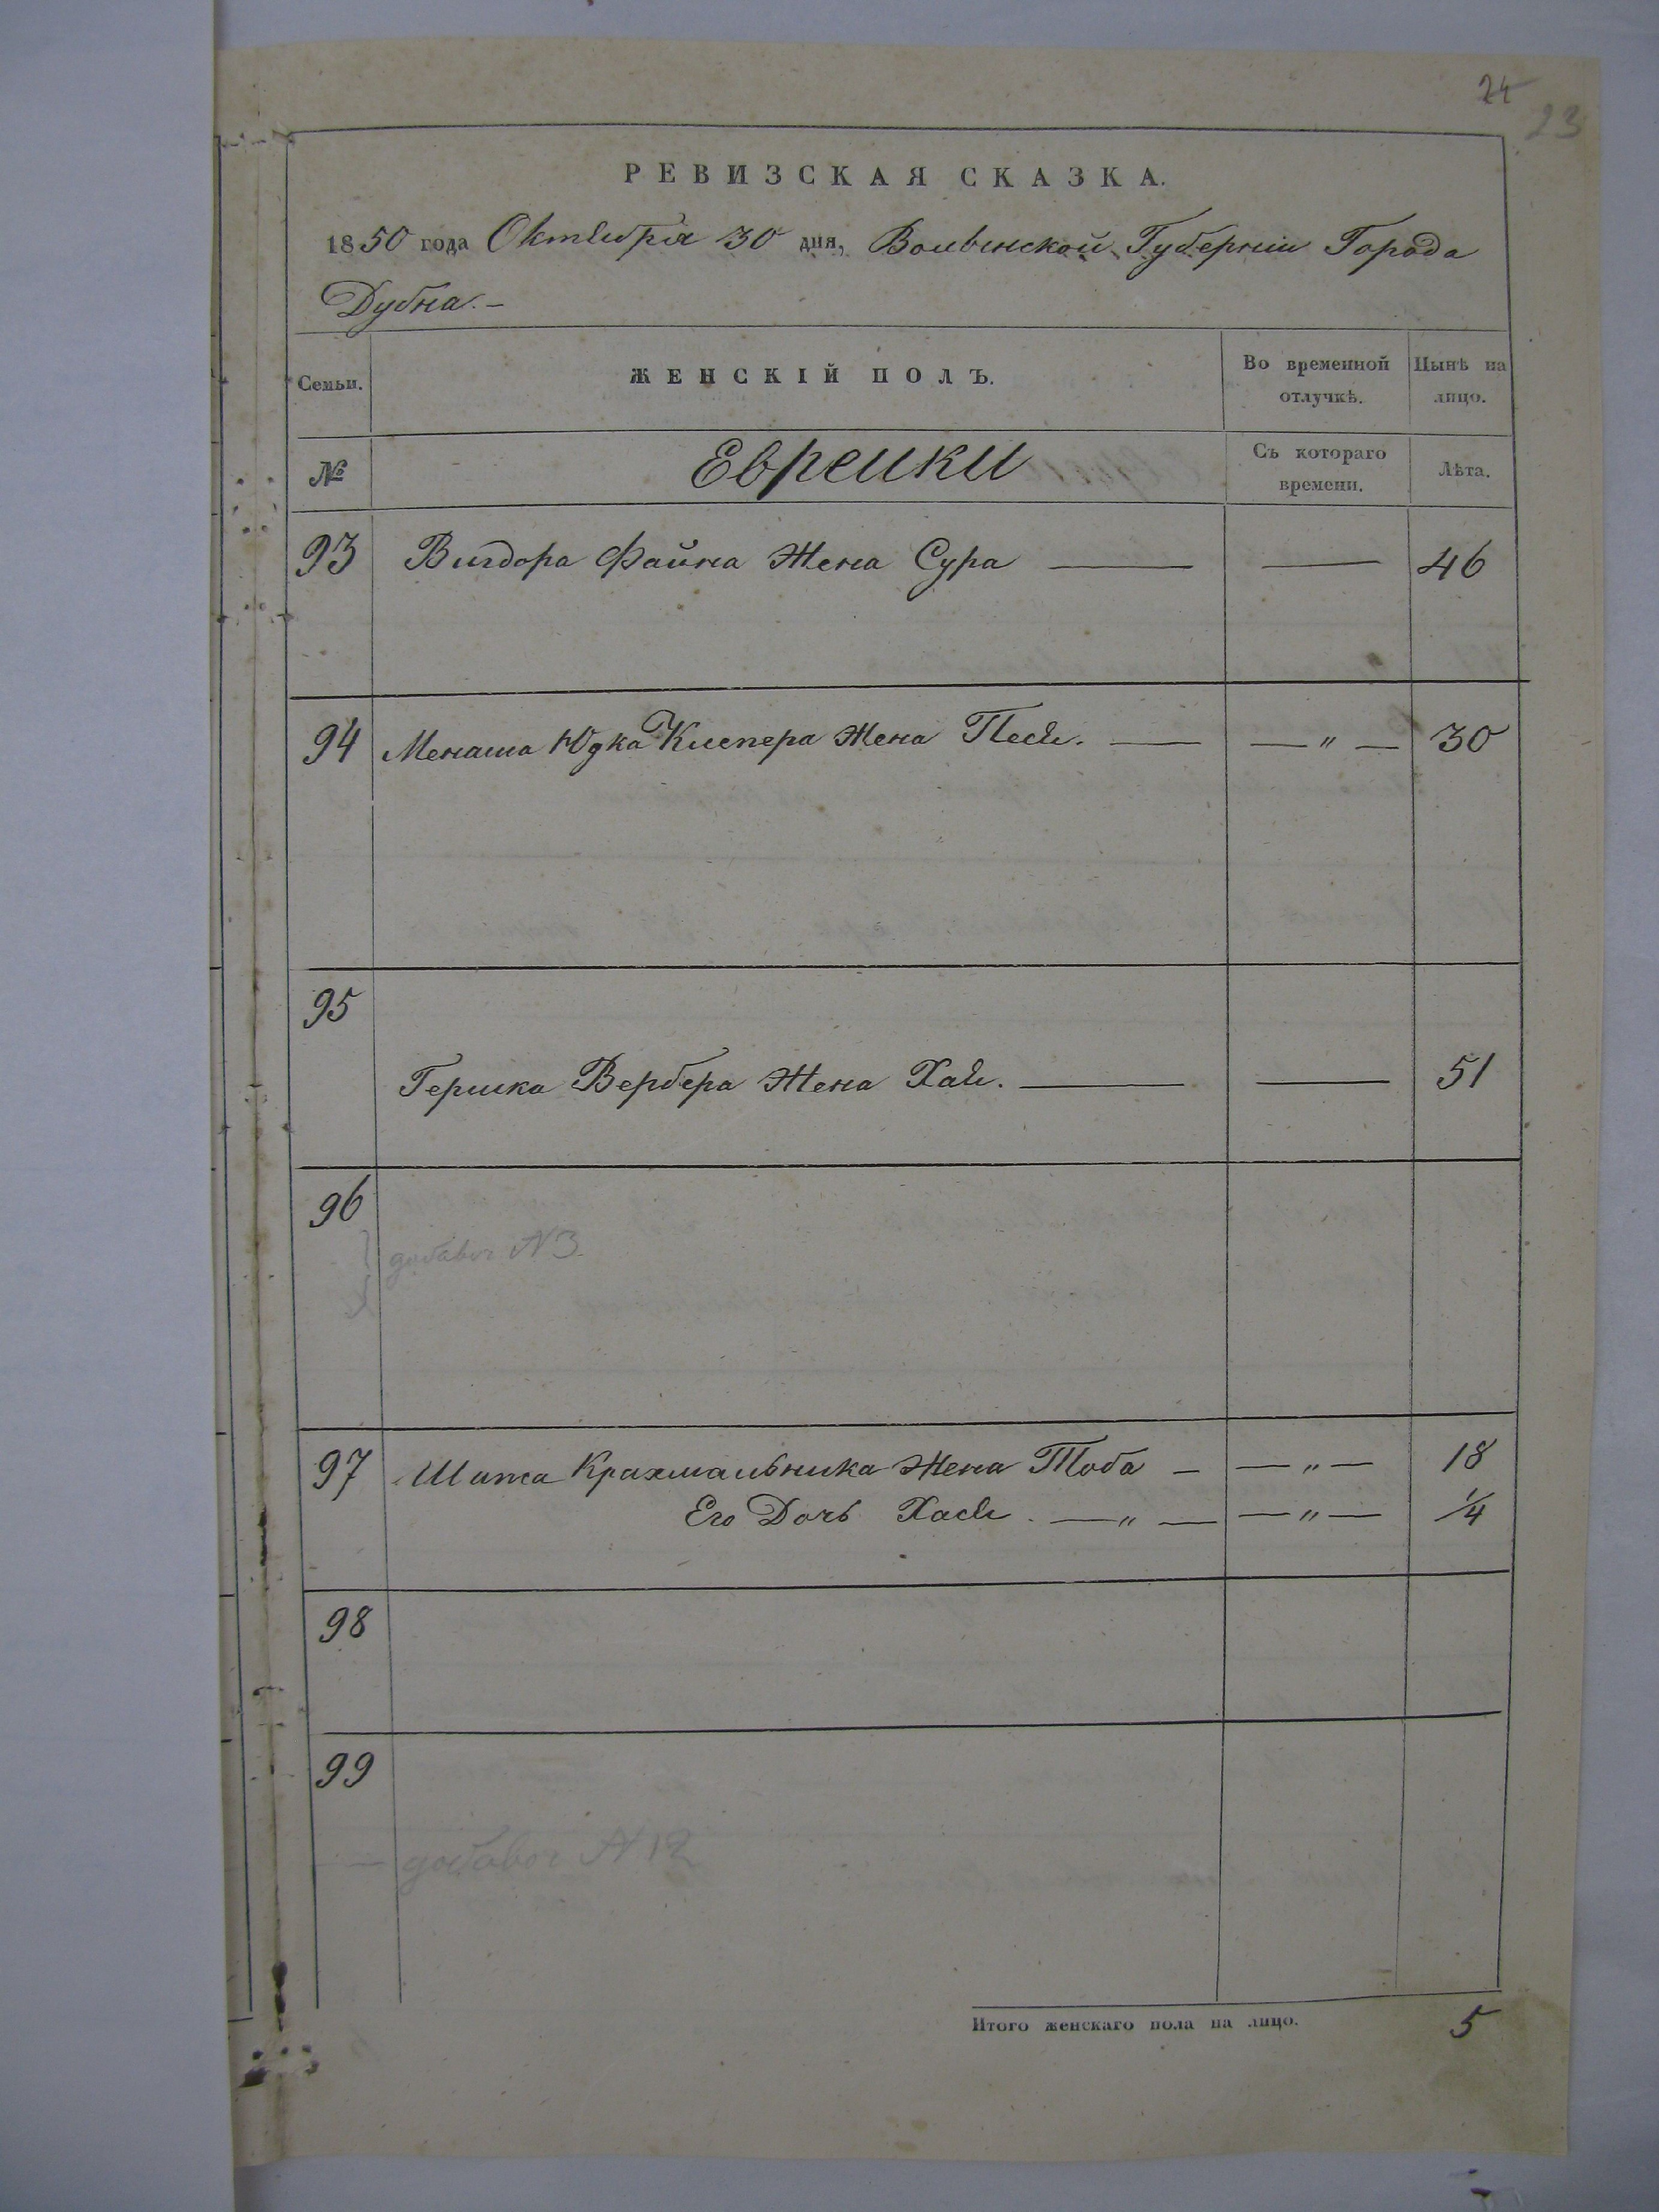 24
23
РЕВИЗСКАЯ СКАЗКА.
1850 года Октября 30 дня, Волынской Губернии Города
Дубна.-
Семьи.
ЖЕНСКІЙ ПОЛЪ.
Во временной отлучкѣ.
Цынѣ на лицо.
№
Еврейки
Съ котораго времени.
Лѣта.
93 Вигдора Файна Жена Сура — — 46
94 Менаша Юдка Клепера Жена Песя. — — " — 30
95
Гершка Вербера Жена Хая. — — 51
96
добавоч N 3
97 Шига Крахмальника Жена Тоба — — " — 18
Его Дочь Хася. — " — — " — 1/4
98
99
— добавоч N 12
Итого женскаго пола на лицо. 5